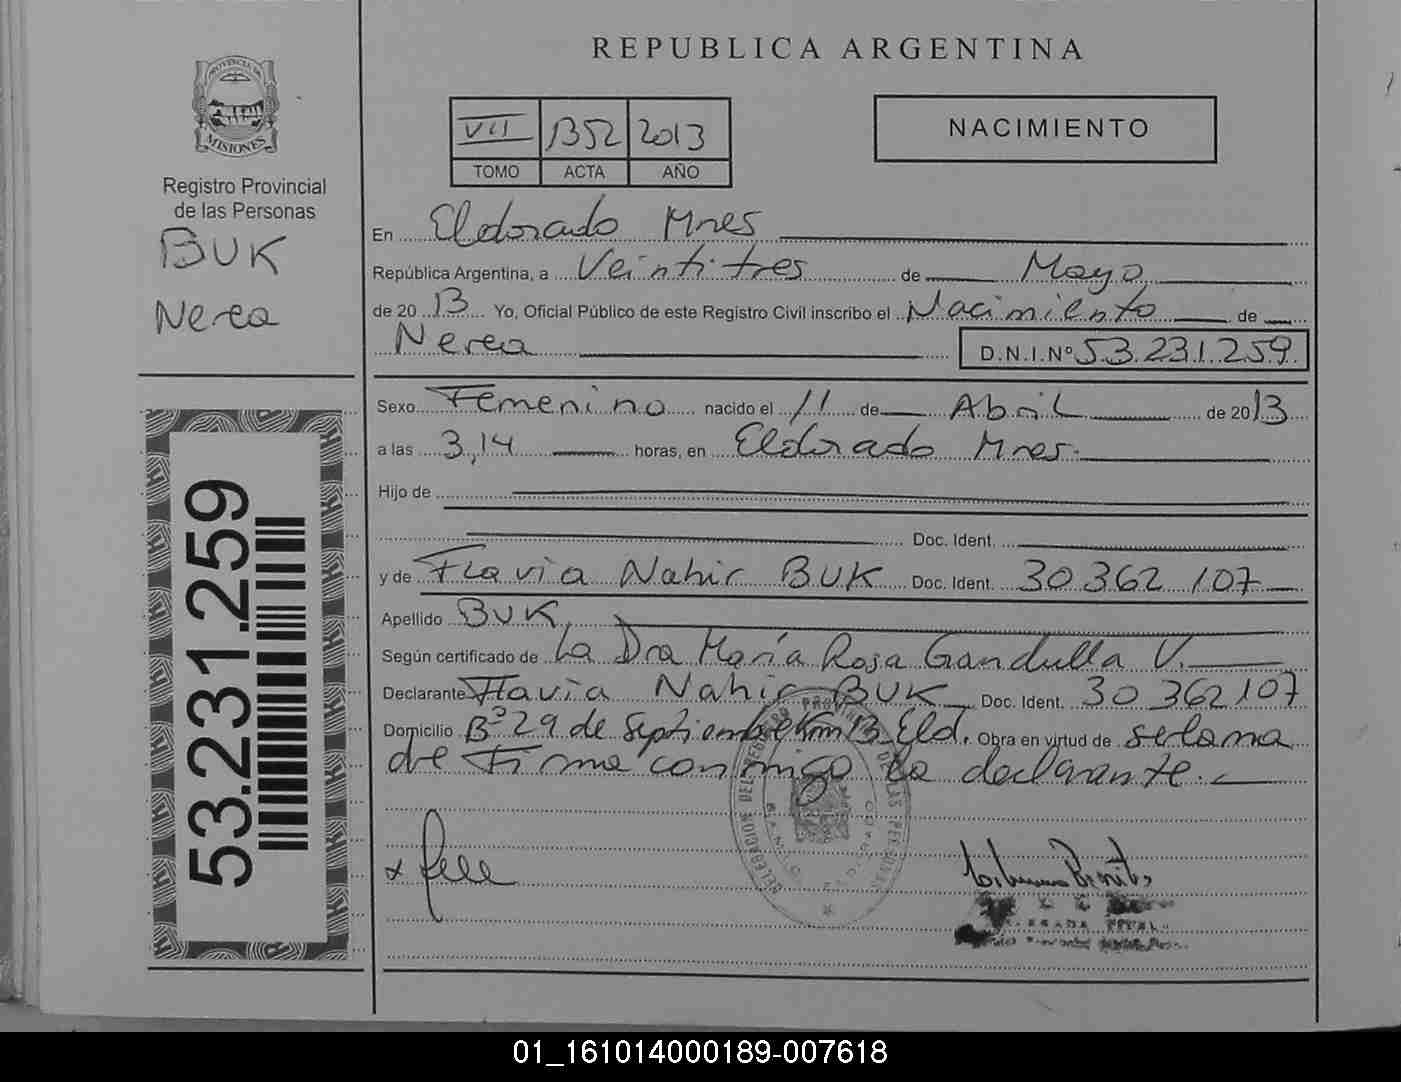 REPUBLICA ARGENTINA
PROVINCIA DE
MISIONES
Registro Provincial
de las Personas
BUK
Nerea
53.231.259
VII 1352 2013
TOMO ACTA AÑO
NACIMIENTO
En Eldorado Mnes
República Argentina, a Veintitres de Mayo
de 20 13 Yo, Oficial Público de este Registro Civil inscribo el Nacimiento de
Nerea D.N.I.Nº 53.231.259
Sexo Femenino nacido el 11 de Abril de 2013
a las 3,14 horas, en Eldorado Mnes.
Hijo de
Doc. Ident.
y de Flavia Nahir BUK Doc. Ident. 30 362 107
Apellido BUK
Según certificado de La Dra María Rosa Gandulla V.
Declarante Flavia Nahir BUK Doc. Ident. 30 362 107
Domicilio Bº 29 de Septiembre Km 13 Eld. Obra en virtud de ser la ma
dre Firma conmigo la declarante.
01_161014000189-007618